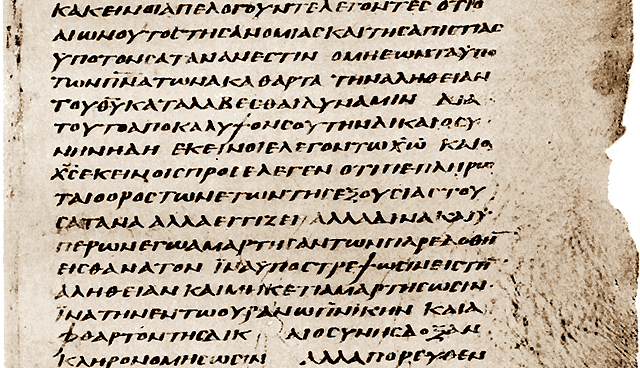 ΚΑΚΕΙΝΟΙΑΠΕΛΟΓΟΥΝΤΕΛΕΓΟΝΤΕϹ ΟΤΙΟ
ΑΙΩΝΟΥΤΟϹΤΗϹΑΝΟΜΙΑϹΚΑΙΤΗϹΑΠΙϹΤΙΑϹ
ΫΠΟΤΟΝϹΑΤΑΝΑΝΕϹΤΙΝ ΟΜΗΕΩΝΤΑΫΠΟ
ΤΩΝΠ̅Ν̅Α̅ΤΩΝΑΚΑΘΑΡΤΑ ΤΗΝΑΛΗΘΕΙΑΝ
ΤΟΥΘ̅Υ̅ΚΑΤΑΛΑΒΕϹΘΑΙΔΥΝΑΜΙΝ ΔΙΑ
ΤΟΥΤΟΑΠΟΚΑΛΥΨΟΝϹΟΥΤΗΝΔΙΚΑΙΟϹΥ
ΝΗΝΗΔΗ ΕΚΕΙΝΟΙΕΛΕΓΟΝΤΩΧ̅Ω̅ ΚΑΙΟ
Χ̅Ϲ̅ΕΚΕΙΝΟΙϹΠΡΟϹΕΛΕΓΕΝ ΟΤΙΠΕΠΛΗΡΩ
ΤΑΙΟΟΡΟϹΤΩΝΕΤΩΝΤΗϹΕΞΟΥϹΙΑϹΤΟΥ
ϹΑΤΑΝΑ ΑΛΛΑΕΓΓΙΖΕΙ ΑΛΛΑΔΙΝΑΚΑΙΫ
ΠΕΡΩΝΕΓΩΑΜΑΡΤΗϹΑΝΤΩΝΠΑΡΕΔΟΘΗΝ
ΕΙϹΘΑΝΑΤΟΝ ΪΝΑΫΠΟϹΤΡΕΨΩϹΙΝΕΙϹΤΗΝ
ΑΛΗΘΕΙΑΝ ΚΑΙΜΗΚΕΤΙΑΜΑΡΤΗϹΩϹΙΝ
ΪΝΑΤΗΝΕΝΤΩΟΥΡΑΝΩΠ̅Ν̅Ι̅ΚΗΝ ΚΑΙΑ
ΦΘΑΡΤΟΝΤΗϹΔΙΚ ΑΙΟϹΥΝΗϹΔΟΞΑΝ
ΚΛΗΡΟΝΟΜΗϹΩϹΙΝ ΑΛΛΑΠΟΡΕΥΘΕΝ